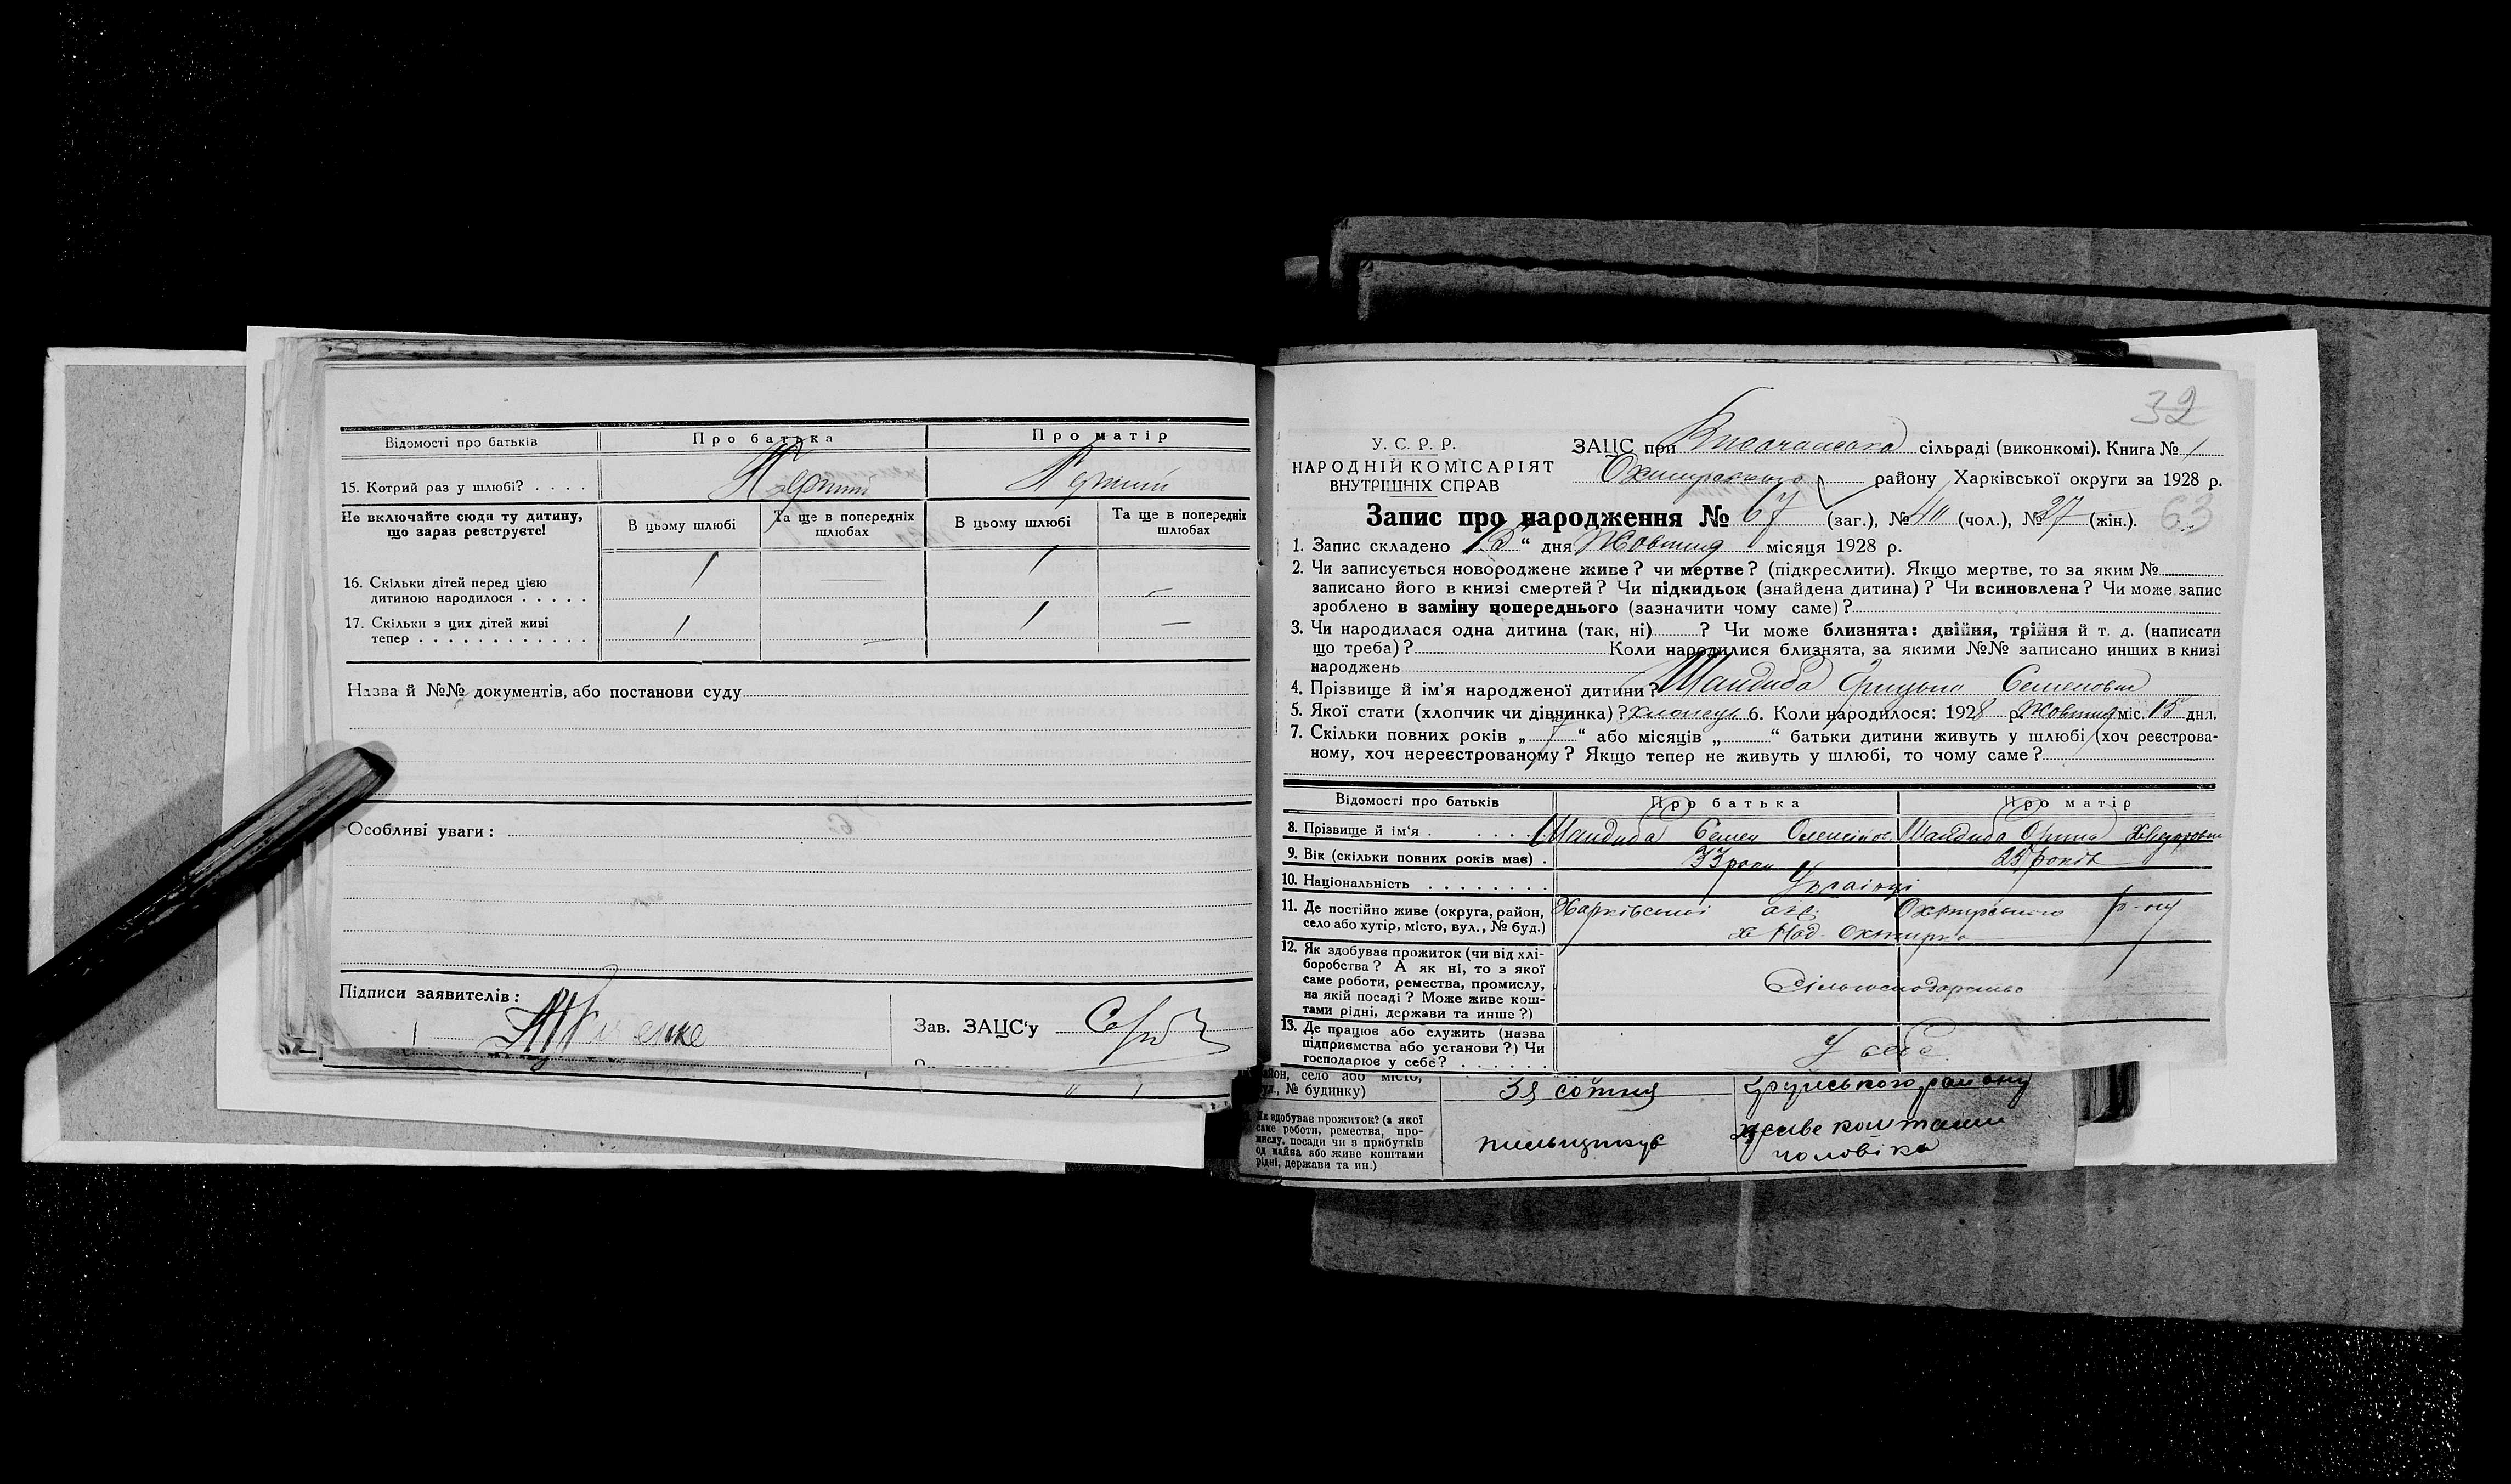 Відомості про батьків
Про батька
Про матір
15. Котрий раз у шлюбі? . . . .
Перший
Перший
Не включайте сюди ту дитину,
що зараз реєструєте!
В цьому шлюбі
Та ще в попередніх
шлюбах
В цьому шлюбі
Та ще в попередніх
шлюбах
16. Скільки дітей перед цією
дитиною народилося . . . . .
1
—
1
—
17. Скільки з цих дітей живі
тепер . . . . . . . . . . . .
1
—
1
—
Назва й №№ документів, або постанови суду
Особливі уваги:
Підписи заявителів:
Зав. ЗАЦС'у
32
У. С. Р. Р.
НАРОДНІЙ КОМІСАРІЯТ
ВНУТРІШНІХ СПРАВ
ЗАЦС при сільраді (виконкомі). Книга № 1
Охтирського району Харківської округи за 1928 р.
Запис про народження № 67 (заг.), № 40 (чол.), № 27 (жін.).
63
1. Запис складено " дня Жовтня місяця 1928 р.
2. Чи записується новороджене живе? чи мертве? (підкреслити). Якщо мертве, то за яким №
записано його в книзі смертей? Чи підкидьок (знайдена дитина)? Чи всиновлена? Чи може запис
зроблено в заміну попереднього (зазначити чому саме)?
3. Чи народилася одна дитина (так, ні) ? Чи може близнята: двійня, трійня й т. д. (написати
що треба)? Коли народилися близнята, за якими №№ записано инших в книзі
народжень
4. Прізвище й ім'я народженої дитини? Шандиба Грицько Семенович
5. Якої стати (хлопчик чи дівчинка)? хлопець 6. Коли народилося: 1928 р. Жовтня міс. 15 дня.
7. Скільки повних років „ 7 “ або місяців „ “ батьки дитини живуть у шлюбі (хоч реєстрова-
ному, хоч нереєстрованому? Якщо тепер не живуть у шлюбі, то чому саме?
Відомості про батьків
Про батька
Про матір
8. Прізвище й ім'я . . . . .
Шандиба Семен Олексійов.
Шандиба Орина Хведоровна
9. Вік (скільки повних років має) .
33 роки
25 років
10. Національність . . . . . . . .
Українці
11. Де постійно живе (округа, район,
село або хутір, місто, вул., № буд.)
Харківської окр. Охтирського р-ну
х Под-Охтирка
12. Як здобуває прожиток (чи від хлі-
боробства? А як ні, то з якої
саме роботи, ремества, промислу,
на якій посаді? Може живе кош-
тами рідні, держави та инше?)
Сільгосподарство
13. Де працює або служить (назва
підприємства або установи?) Чи
господарює у себе? . . . . . .
У себе
район, село або місто,
вул., № будинку)
3я сотня
району
Як здобуває прожиток? (з якої
саме роботи, ремества, про-
мислу, посади чи з прибутків
од майва або живе коштами
рідні, держави та ин.)
пильщикує
живе коштами
чоловіка